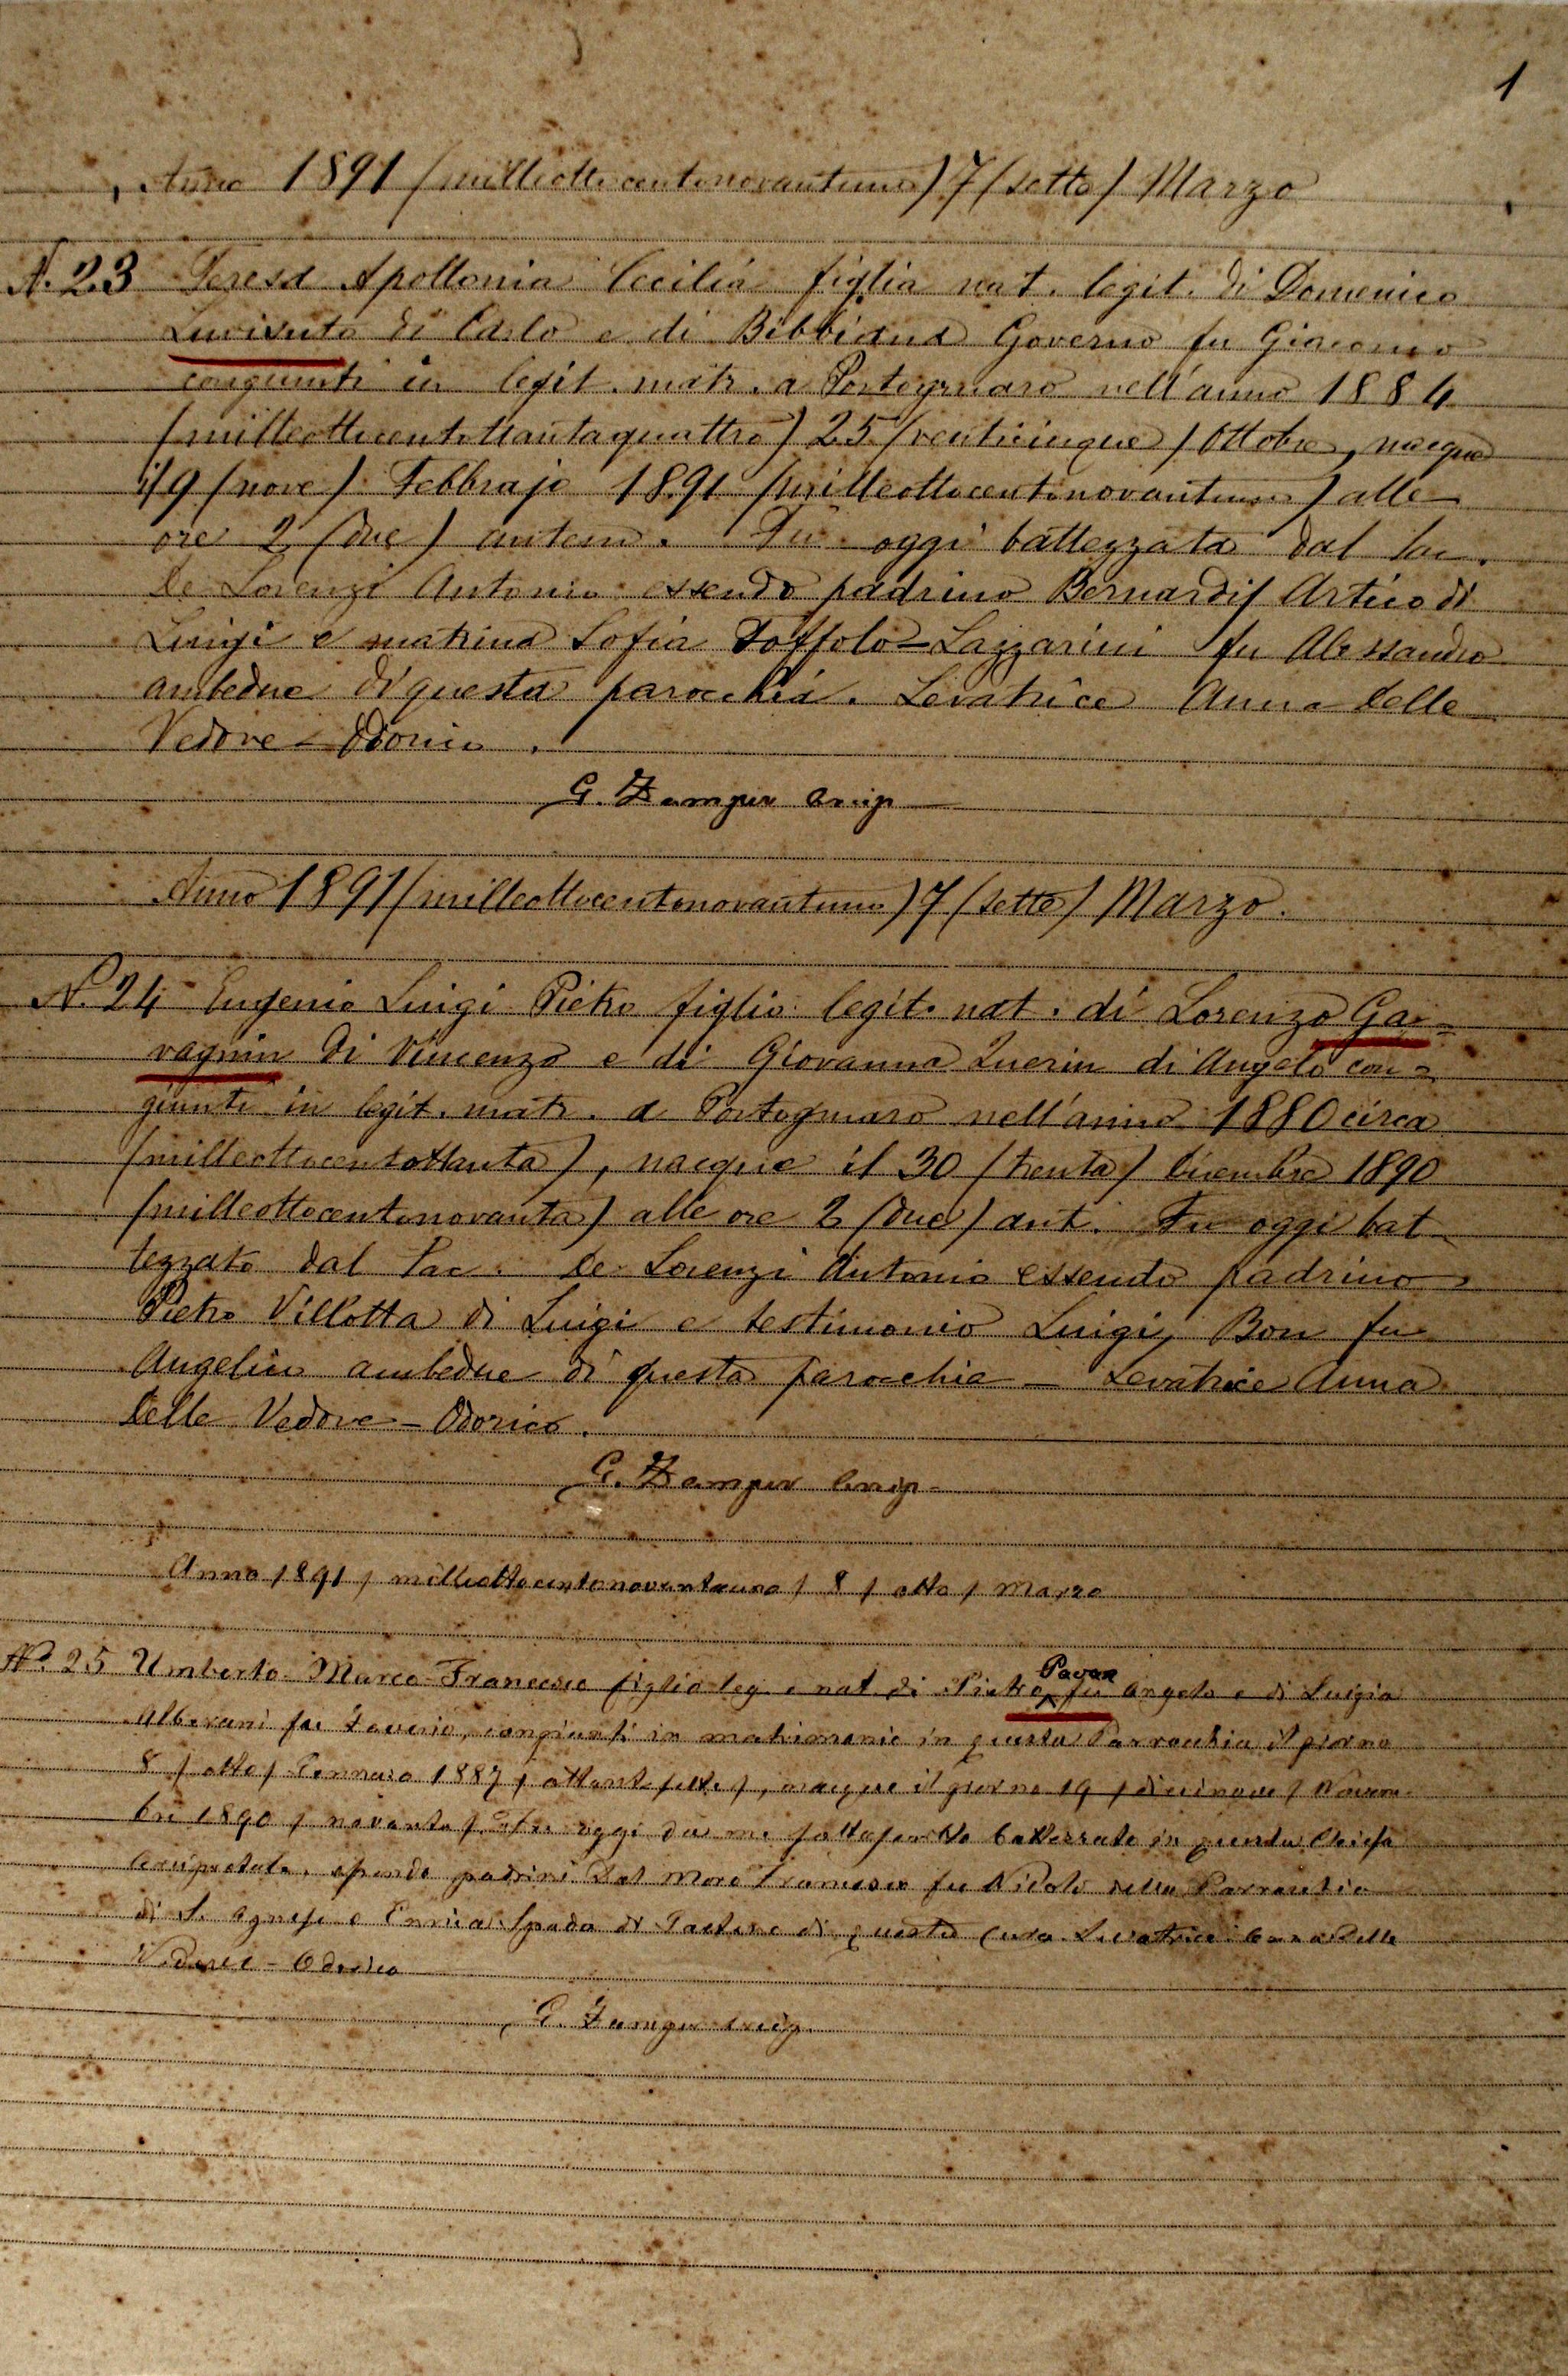 1
Anno 1891 (milleottocentonovantuno) 7 (sette) Marzo
N. 23 Teresa Apollonia Cecilia figlia nat. legit. di Domenico
di Carlo e di Bibbiana Governo fu Giacomo
congiunti in legit. matr. a Portogruaro nell'anno 1884
(milleottocentottantaquattro) 25 (venticinque) Ottobre, nacque
il 9 (nove) Febbrajo 1891 (milleottocentonovantuno) alle
ore 2 (due) antem. Fu oggi battezzata dal Sac.
De Lorenzi Antonio essendo padrino Bernardis Artico di
Luigi e matrina Sofia Toffolo-Lazzarini fu Alessandro
ambedue di questa parocchia. Levatrice Anna Delle
Vedove-Odorico.
G. Zamper Arcip
Anno 1891 (milleottocentonovantuno) 7 (sette) Marzo.
N. 24 Eugenio Luigi Pietro figlio legit. nat. di Lorenzo Gar=
vagnin di Vincenzo e di Giovanna Querin di Angelo con=
giunti in legit. matr. a Portogruaro nell'anno 1880 circa
(milleottocentottanta), nacque il 30 (trenta) Dicembre 1890
(milleottocentonovanta) alle ore 2 (due) ant. Fu oggi bat
tezzato dal Sac. De Lorenzi Antonio essendo padrino
Pietro Villotta di Luigi e testimonio Luigi Bon fu
Angelico ambedue di questa parocchia - Levatrice Anna
Delle Vedove-Odorico.
G. Zamper Arcip-
Anno 1891 / milleottocentonovantauno / 8 / otto / Marzo
N.° 25 Umberto-Marco-Francesco figlio leg. e nat. di Pietro Pavan fu Angelo e di Luigia
fu congiunti in matrimonio in questa Parrocchia il giorno
8 / otto / Gennaio 1887 / ottantasette /, nacque il giorno 19 / diecinove / Novem-
bre 1890 / novanta /. oggi da me sottoscritto battezzato in questa Chiesa
Arcipretale, essendo padrini Dal Moro Francesco fu Nicolò della Parrocchia
di S. Agnese e Enrica Spada di di questa Cura. Levatrice Anna Delle
Vedove-Odorico
G. Zamper Arcip.